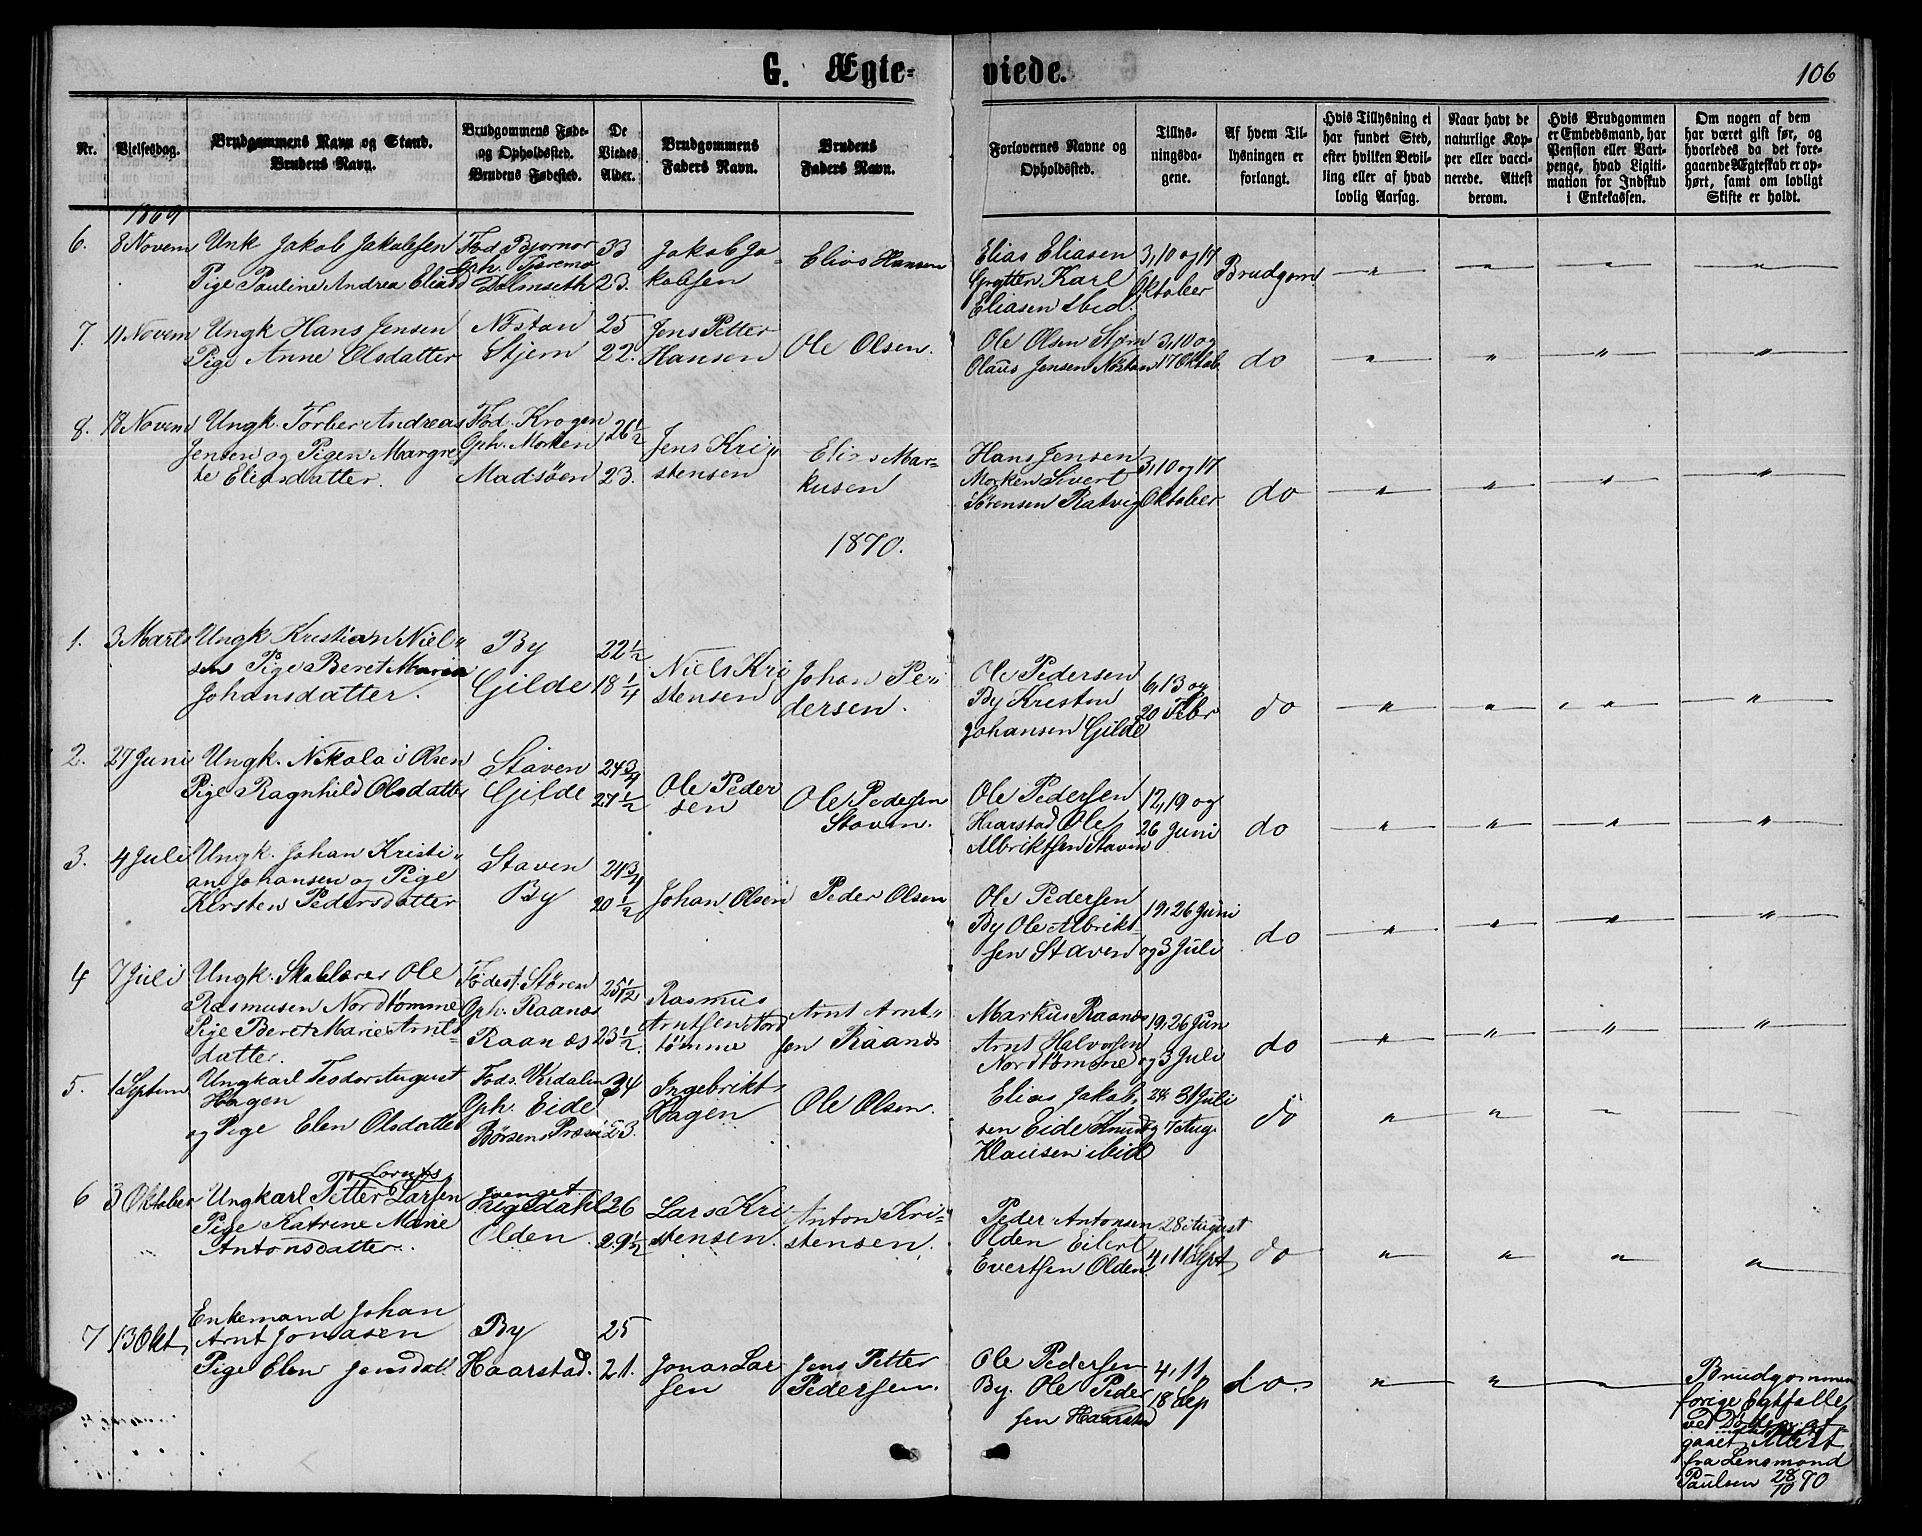 G. Ægte-
viede.
106
Nr.
Vielsesdag.
Brudgommens Navn og Stand.
Brudens Navn.
Brudgommens Føde-
og Opholdssted.
Brudens Fødested.
De
Viedes
Alder.
Brudgommens
Faders Navn.
Brudens
Faders Navn.
Forlovernes Navne og
Opholdssted.
Tillys-
ningsda-
gene.
Af hvem Til-
lysningen er
forlangt.
Hvis Tillysning ei
har fundet Sted,
efter hvilken Bevil-
ling eller af hvad
lovlig Aarsag.
Naar havt de
naturlige Kop-
per eller vacci-
nerede. Attest
derom.
Hvis Brudgommen
er Embedsmand, har
Pension eller Vart-
penge, hvad Ligiti-
mation for Indskud
i Enkekassen.
Om nogen af dem
har været gift før, og
hvorledes da det fore-
gaaende Ægteskab er op-
hørt, samt om lovligt
Skifte er holdt.
1869
6.
8 Novem
Unk Jakob Jakobsen
Pige Pauline Andrea Eliasd
Fød Bjornor
Oph. Tjoremo
Dalmseth
33
23.
Jakob Ja-
kobsen
Elias Hansen
Elias Eliasen
Grøtten Karl
Eliasen ibid.
3, 10 og 17
Oktober
Brudgom
7.
11 Novem
Ungk Hans Jensen
Pige Anne Olsdatter
Nøstan
Stjern
25
22.
Jens Petter
Hansen
Ole Olsen.
Ole Olsen Stjern
Olaus Jensen Nøstan
3, 10 og
17 Oktob
do
8.
18 Novem
Ungk. Torber Andreas
Jensen og Pigen Margre
te Eliasdatter.
Fød. Krogen
Oph. Morken
Madsøen
26 1/2
23.
Jens Kri-
stensen
Elias Mar-
kusen
Hans Jensen
Morken Sivert
Sørensen Ratvig
3, 10 og 17
Oktober
do
1870.
1.
3 Marts
Ungk Kristian Niel-
sen Pige Beret Maria
Johansdatter.
By
Gilde
22 1/2
18 1/4
Niels Kri
stensen
Johan Pe-
dersen.
Ole Pedersen
By Kresten
Johansen Gilde
6, 13 og
20 Febr
do
2.
27 Juni
Ungk. Nikolai Olsen
Pige Ragnhild Olsdatter
Staven
Gilde
24 3/4
27 1/2
Ole Peder
sen
Ole Pedersen
Staven.
Ole Pedersen
Haarstad Ole
Albriktsen Staven
12, 19 og
26 Juni
do
3.
4 Juli
Ungk. Johan Kristi-
an Johansen og Pige
Kirsten Pedersdatter
Staven
By
24 3/4
20 1/2
Johan Olsen
Peder Olsen
Ole Pedersen
By Ole Albrikt
sen Staven
19, 26 Juni
og 3 Juli
do
4
7 Juli
Ungk. Skolelærer Ole
Rasmusen Nordtømme
Pige Beret Marie Arnts
datter.
Fødest. Støren
Oph. Raanæs
Raanæs
25 1/2
23 1/2.
Rasmus
Arntsen Nord
tømme
Arnt Arnt-
sen Raanæs
Markus Raanæs
Arnt Halvorsen
Nordtømme
19, 26 Jun
og 3 Juli
do
5.
1 Septem
Ungkarl Teodor August
Hagen
og Pige Elen Olsdatter
Føds. Verdalen
Oph. Eide
Børsens Præst
34
23.
Ingebrikt
Hagen
Ole Olsen.
Elias Jakob-
sen Eide Knud
Klausen ibid
24 31 Juli
og 7 Aug.
do
6
3 Oktober
Lornts
Ungkarl Petter Larsen
Pige Katrine Marie
Antonsdatter.
Olden
26
29 1/2
Lars Kri
stensen.
Anton Kri-
stensen.
Peder Antonsen
Olden Eilert
Evertsen Olden
28 August
4, 11 Sept
do
7
13 Okt,
Enkemand Johan
Arnt Jonasen
Pige Elen Jensdatt
By
Haarstad.
25
21.
Jonas Lar
sen
Jens Petter
Pedersen.
Ole Pedersen
By. Ole Peder
sen Haarstad
4, 11
18 Sep
do.
Brudgommen
forige Egtfælle
ved Døden af-
gaaet Attest
fra Lensmand
Paulsen 28/10 70